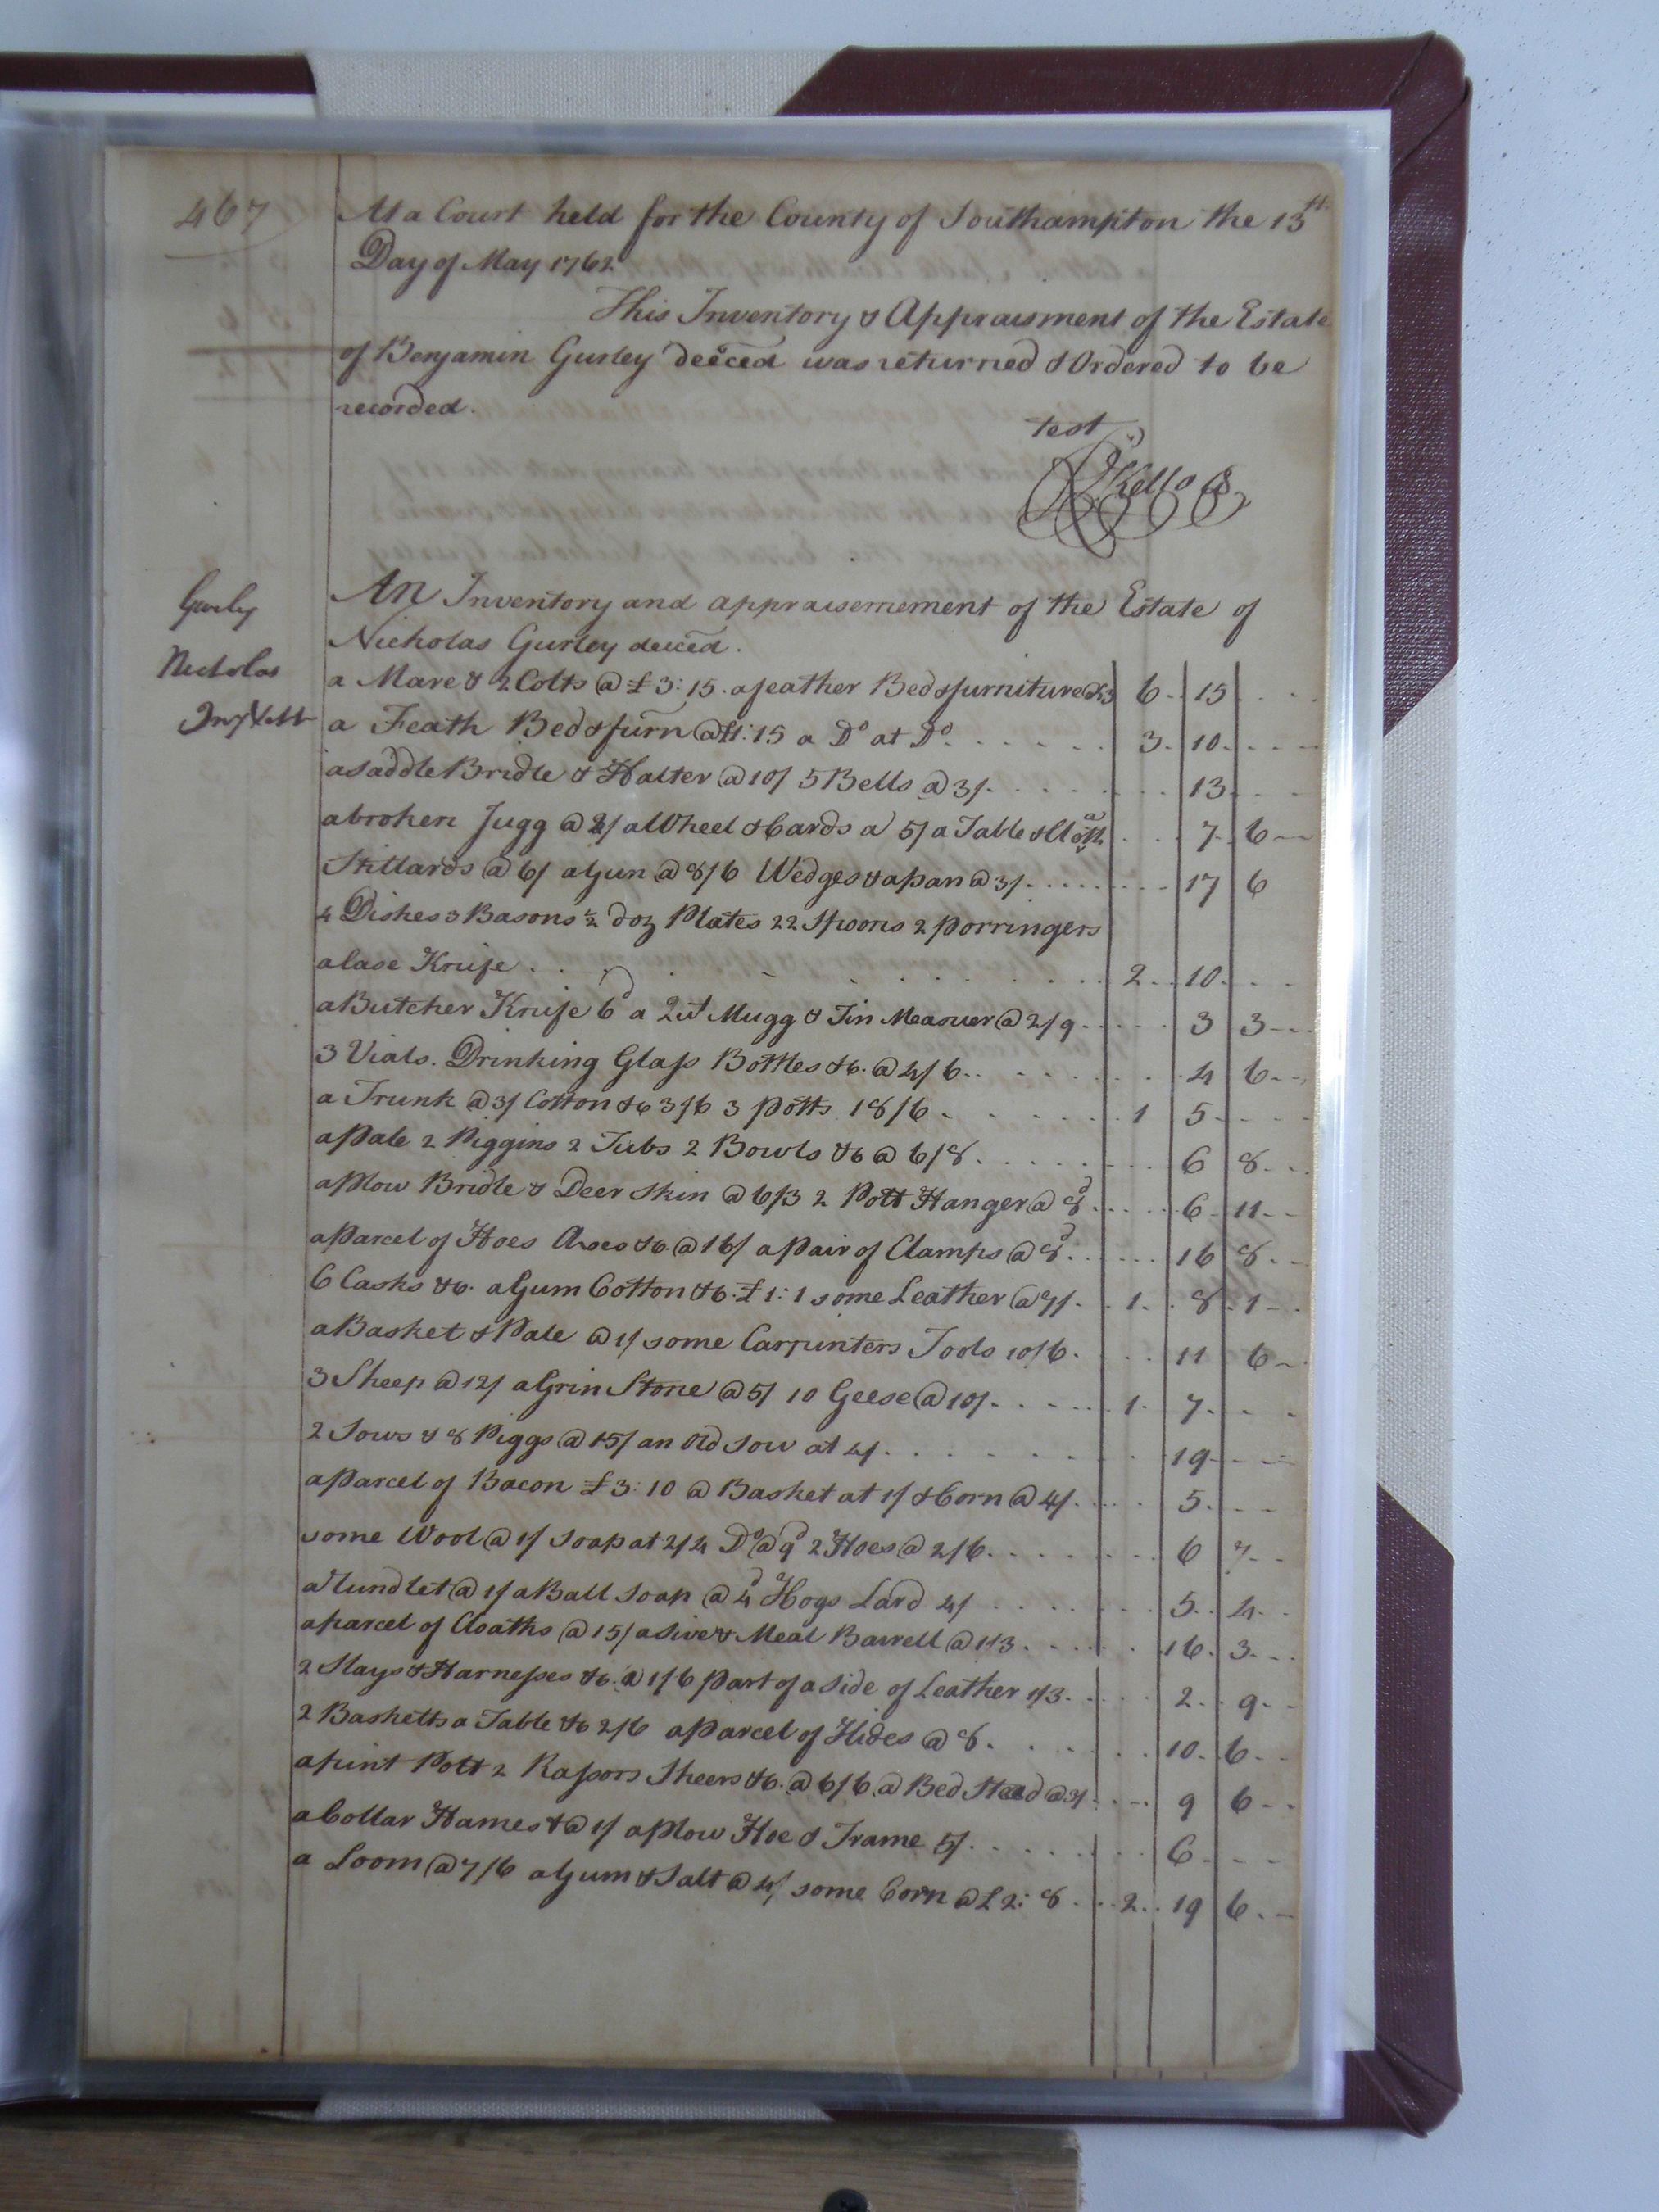 467
At a Court held for the County of Southampton the 13th
Day of May 1762
This Inventory & Appraisment of the Estate
of Benjamin Gurley deced was returned & Ordered to be
recorded.
test
RKello Cl
Gurley
Nicholas
Inv
An Inventory and appraisemement of the Estate of
Nicholas Gurley deced.
a Mare & 2 Colts @ £3:15. a feather Bed & furniture @£3 6. 15
a Feath Bed & furn @£1:15 a Do at Do 3. 10.
a saddle Bridle & Halter @ 10/ 5 Bells @ 3/. 13.
a broken Jugg @ 2/ a Wheel & Cards a 5/ a Table & Cloath 7. 6
Stillards @ 6/ a Gun @ 8/6 Wedges & a pan @ 3/. 17 6
4 Dishes 3 Basons ½ doz Plates 22 Spoons 2 porringers
a Case Knife 2. 10.
a Butcher Knife 6d a Qut Mugg & Tin Measuer @ 2/9. 3 3
3 Vials. Drinking Glass Bottles &c. @ 4/6. 4 6
a Trunk @ 3/ Cotton &c 3/6 3 potts 18/6. 1 5
a Pale 2 Piggins 2 Tubs 2 Bowls &c @ 6/8. 6 8
a Plow Bridle & Deer Skin @ 6/3 2 Pott Hanger @ 8d. 6 11
a Parcel of Hoes Axes &c. @ 16/ a pair of Clamps @ 8d. 16 8
6 Casks &c. a Gum Cotton &c. £1:1 some Leather @ 7/1. 1. 8. 1
a Basket & Pale @ 1/ some Carpinters Tools 10/6. 11 6
3 Sheep @ 12/ a Grin Stone @ 5/ 10 Geese @ 10/. 1. 7.
2 Sows & 8 Piggs @ 15/ an Old sow at 4/. 19
a Parcel of Bacon £3:10 @ Basket at 1/ & Corn @ 4/. 5.
some Wool @ 1/ Soap at 2/4 Do @ 9d 2 Hoes @ 2/6. 6 7
a Rundlet @ 1/ a Ball Soap @ 4d Hogs Lard 4/ 5. 4.
a parcel of Cloaths @ 15/ a Sive & Meal Barrell @ 1/3. 16. 3.
2 Slays & Harnesses &c. @ 1/6 part of a Side of Leather 1/3. 2. 9.
2 Basketts a Table &c 2/6 a Parcel of Hides @ 8. 10. 6.
a pint Pott 2 Rassors Sheers &c. @ 6/6. a Bed Stead @ 3/ 9 6
a Collar Hames & @ 1/ a Plow Hoe & Frame 5/. 6.
a Loom @ 7/6 a Gum & Salt @ 4/ some Corn @ £2:8 2. 19 6.